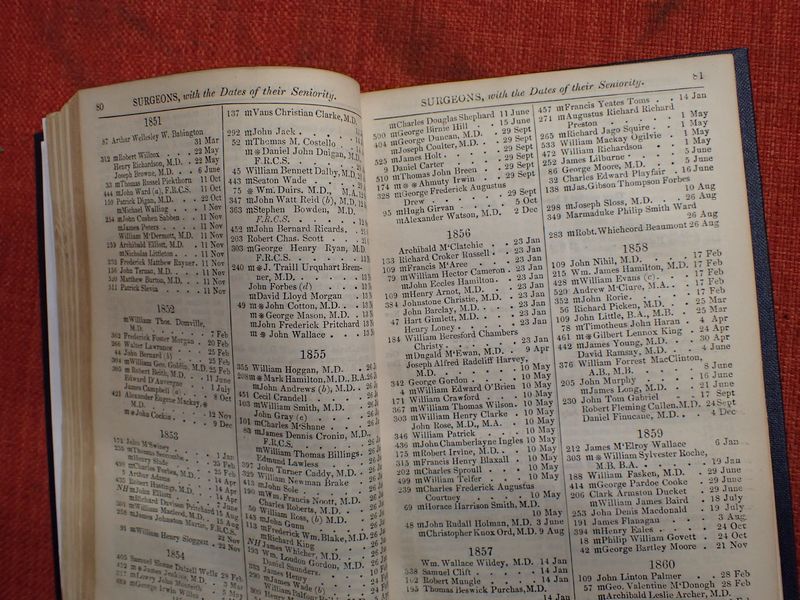 80
SURGEONS, with the Dates of their Seniority.
1851
87 Arthur Wellesley W. Babington
31 Mar
312 mRobert Willcox . . 22 May
Henry Richardson, M.D. . 22 May
Joseph Browne, M.D. . 6 June
33 mThomas Russel Pickthorn 11 Oct
444 mJohn Ward (a), F.R.C.S. 11 Oct
150 Patrick Digan, M.D. . 22 Oct
mMichael Walling . . 1 Nov
254 mJohn Cashen Sabben . 11 Nov
mJames Peters . . 11 Nov
William McDermott, M.D. 11 Nov
259 Archibald Elliott, M.D. . 11 Nov
mNicholas Littleton . . 11 Nov
Frederick Matthew Rayner . 11 Nov
156 John Ternan, M.D. . 11 Nov
320 Matthew Burton, M.D. . 11 Nov
311 Patrick Slevin . . 11 Nov
1852
m William Thos. Domville,
M.D. . . 7 Feb
362 Frederick Foster Morgan . 20 Feb
266 Walter Lawrance . . 25 Feb
44 John Bernard (b) . . 25 Feb
304 mWilliam Geo. Goldie, M.D. 25 Feb
m Robert Beith, M.D. . 11 June
Edward D'Auvergne . 1 July
James Campbell (a) . 8 Oct
421 Alexander Eugène Mackay,
M.D. . . 12 Nov
m John Cockin . . 9 Dec
1853
171 John McSwiney . . 1 Jan
mThomas Seccombe . 25 Feb
m Henry Slade
mCharles Forbes, M.D. . 14 Apr
Arthur Adams
Robert Hastings, M.D.
NH mJohn Elliott
mRichard Davison Pritchard 15 Aug
mWilliam Macleod, M.D. . 15 Aug
mJames Johnston Martin, F.R.C.S.
22 Nov
91 mWilliam Henry Sloggett . 22 Nov
1854
405 Samuel Sloane Dalzell Wells 22 Feb
James Jenkins, M.D.
Lewry
George Irwin
137 mVaus Christian Clarke, M.D.
292 mJohn Jack . . .
52 mThomas M. Costello . .
m Daniel John Duigan, M.D.
F.R.C.S. . . .
45 William Bennett Dalby, M.D.
443 mSeaton Wade . . .
75 Wm. Duirs. M.D., M.A.
347 mJohn Watt Reid (b), M.D.
363 mStephen Bowden, M.D.
F.R.C.S. . . .
452 mJohn Bernard Ricards . .
203 Robert Chas. Scott . .
303 mGeorge Henry Ryan, M.D.
F.R.C.S. . . .
240 m J. Traill Urquhart Brem-
ner, M.D. . . .
John Forbes (d) . .
mDavid Lloyd Morgan . .
49 m John Cotton, M.D. . .
m George Mason, M.D. . .
mJohn Frederick Pritchard
m John Wallace . . .
1855
355 William Hoggan, M.D. .
Mark Hamilton, M.D., B.A.
mJohn Andrews (b), M.D.
451 Cecil Crandell . .
103 mWilliam Smith, M.D.
John Gray (c) . .
101 mCharles McShane . .
83 mJames Dennis Cronin, M.D.
F.R.C.S. . .
mWilliam Thomas Billings
Edmund Lawless
397 John Turner Caddy, M.D.
329 William Newman Brake
413 mJohn Sole . .
190 mWm. Francis Noott, M.D.
Charles Roberts, M.D.
90 William Ross, (b) M.D.
145 mJohn Gunn
113 mFrederick Wm. Blake, M.D.
mRichard King
NH James Whicher, M.D.
193 Wm. London Gordon, M.D.
233 Daniel Saunders
290 mJames Henry
mJames Wale (b)
William Balfour
Henry
81
SURGEONS, with the Dates of their Seniority.
mCharles Douglas Shephard 11 June
500 mGeorge Birnie Hill . . 15 June
404 mGeorge Duncan, M.D. . 29 Sept
mJoseph Coulter, M.D. . 29 Sept
525 mJames Holt . . 29 Sept
9 Daniel Carter . . 29 Sept
510 mThomas John Breen . 29 Sept
174 m Ahmuty Irwin . . 29 Sept
328 mGeorge Frederick Augustus
Drew . . 29 Sept
95 mHugh Girvan . . 5 Oct
mAlexander Watson, M.D. 2 Dec
1856
Archibald McClatchie . 23 Jan
133 Richard Croker Russell . 23 Jan
109 mFrancis McAree . . 23 Jan
79 mWilliam Hector Cameron . 23 Jan
mJohn Eccles Hamilton . 23 Jan
109 mHenry Arnot, M.D. . 23 Jan
384 Johnstone Christie, M.D. . 23 Jan
John Barclay, M.D. . 23 Jan
47 Hart Gimlett, M.D. . 23 Jan
Henry Loney . . 23 Jan
184 William Beresford Chambers
Christy . . 23 Jan
mDugald McEwan, M.D. . 9 Apr
Joseph Alfred Radcliff Harvey,
M.D. . . 10 May
342 George Gordon . . 10 May
4 mWilliam Edward O'Brien 10 May
171 William Crawford . 10 May
367 mWilliam Thomas Wilson . 10 May
303 mWilliam Henry Clarke . 10 May
John Rose, M.D., M.A. . 10 May
346 William Patrick . . 10 May
436 mJohn Chamberlayne Ingles 10 May
175 mRobert Irvine, M.D. . 10 May
315 mFrancis Henry Blaxall . 10 May
202 mCharles Sproull . . 10 May
499 mWilliam Telfer . . 10 May
239 mCharles Frederick Augustus
Courtney . . 10 May
69 mHorace Harrison Smith, M.D.
10 May
48 mJohn Rudall Holman, M.D. 3 June
mChristopher Knox Ord, M.D. 9 Aug
1857
Wm. Wallace Wildey, M.D. 14 Jan
338 Samuel Clift . . 14 Jan
102 Robert Mungle . . 14 Jan
195 Thomas Beswick Purchas, M.D.
14 Jan
457 mFrancis Yeates Toms . . 14 Jan
271 mAugustus Richard Richard
Preston . . 1 May
265 mRichard Jago Squire . . 1 May
533 William Mackay Ogilvie . 1 May
472 William Richardson . . 1 May
252 James Lilburne . . 5 June
86 George Moore, M.D. . . 5 June
32 Charles Edward Playfair . 16 June
138 mJas. Gibson Thompson Forbes
10 Aug
298 mJoseph Sloss, M.D. . 26 Aug
349 Marmaduke Philip Smith Ward
26 Aug
283 mRobt. Whichcord Beaumont 26 Aug
1858
109 John Nihil, M.D. . . 17 Feb
215 Wm. James Hamilton, M.D. 17 Feb
428 mWilliam Evans (c) . . 17 Feb
520 Andrew McClure, M.A. . 17 Feb
352 mJohn Rorie . . 17 Feb
56 Richard Picken, M.D. . 25 Mar
109 John Little, B.A., M.B. . 25 Mar
78 mTimotheus John Haran . 4 Apr
461 m Gilbert Lennox King . 24 Apr
442 mJames Young, M.D. . 30 Apr
David Ramsay, M.D. . 4 June
376 William Forrest MacClinton,
A.B., M.B. . . 8 June
205 John Murphy . . 16 June
mJames Long, M.D. . 21 June
230 John Tom Gabriel . . 17 Sept
Robert Fleming Cullen, M.D. 24 Sept
Daniel Finucane, M.D. . 4 Dec
1859
212 James McElroy Wallace . 6 Jan
303 m William Sylvester Roche,
M.B. B.A. . . 19 Jan
188 William Fasken, M.D. . 29 June
414 mGeorge Pardoe Cooke . 29 June
206 Clark Arnuston Ducket . 29 June
mWilliam James Baird . 18 July
253 John Denis Macdonald . 19 July
191 James Flanagan . . 3 Aug
394 mHenry Eales . . 24 Oct
18 mPhilip William Govett . 24 Oct
42 mGeorge Bartley Moore . 21 Nov
1860
109 John Linton Palmer . 28 Feb
57 mGeo. Valentine McDonogh 28 Feb
mArchibald Leslie Archer, M.D.